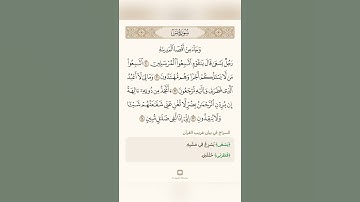 سُورَةُ يسٓ
وَجَآءَ مِنْ أَقْصَا ٱلْمَدِينَةِ
رَجُلٌ يَسْعَىٰ قَالَ يَـٰقَوْمِ ٱتَّبِعُوا۟ ٱلْمُرْسَلِينَ ٢٠ ٱتَّبِعُوا۟
مَن لَّا يَسْـَٔلُكُمْ أَجْرًا وَهُم مُّهْتَدُونَ ٢١ وَمَا لِىَ لَآ أَعْبُدُ
ٱلَّذِى فَطَرَنِى وَإِلَيْهِ تُرْجَعُونَ ٢٢ ءَأَتَّخِذُ مِن دُونِهِۦٓ ءَالِهَةً
إِن يُرِدْنِ ٱلرَّحْمَـٰنُ بِضُرٍّ لَّا تُغْنِ عَنِّى شَفَـٰعَتُهُمْ شَيْـًٔا
وَلَا يُنقِذُونِ ٢٣ إِنِّىٓ إِذًا لَّفِى ضَلَـٰلٍ مُّبِينٍ ٢٤
السراج في بيان غريب القرآن
﴿يَسْعَى﴾ يُسْرِعُ فِي مَشْيِهِ.
﴿فَطَرَنِي﴾ خَلَقَنِي.